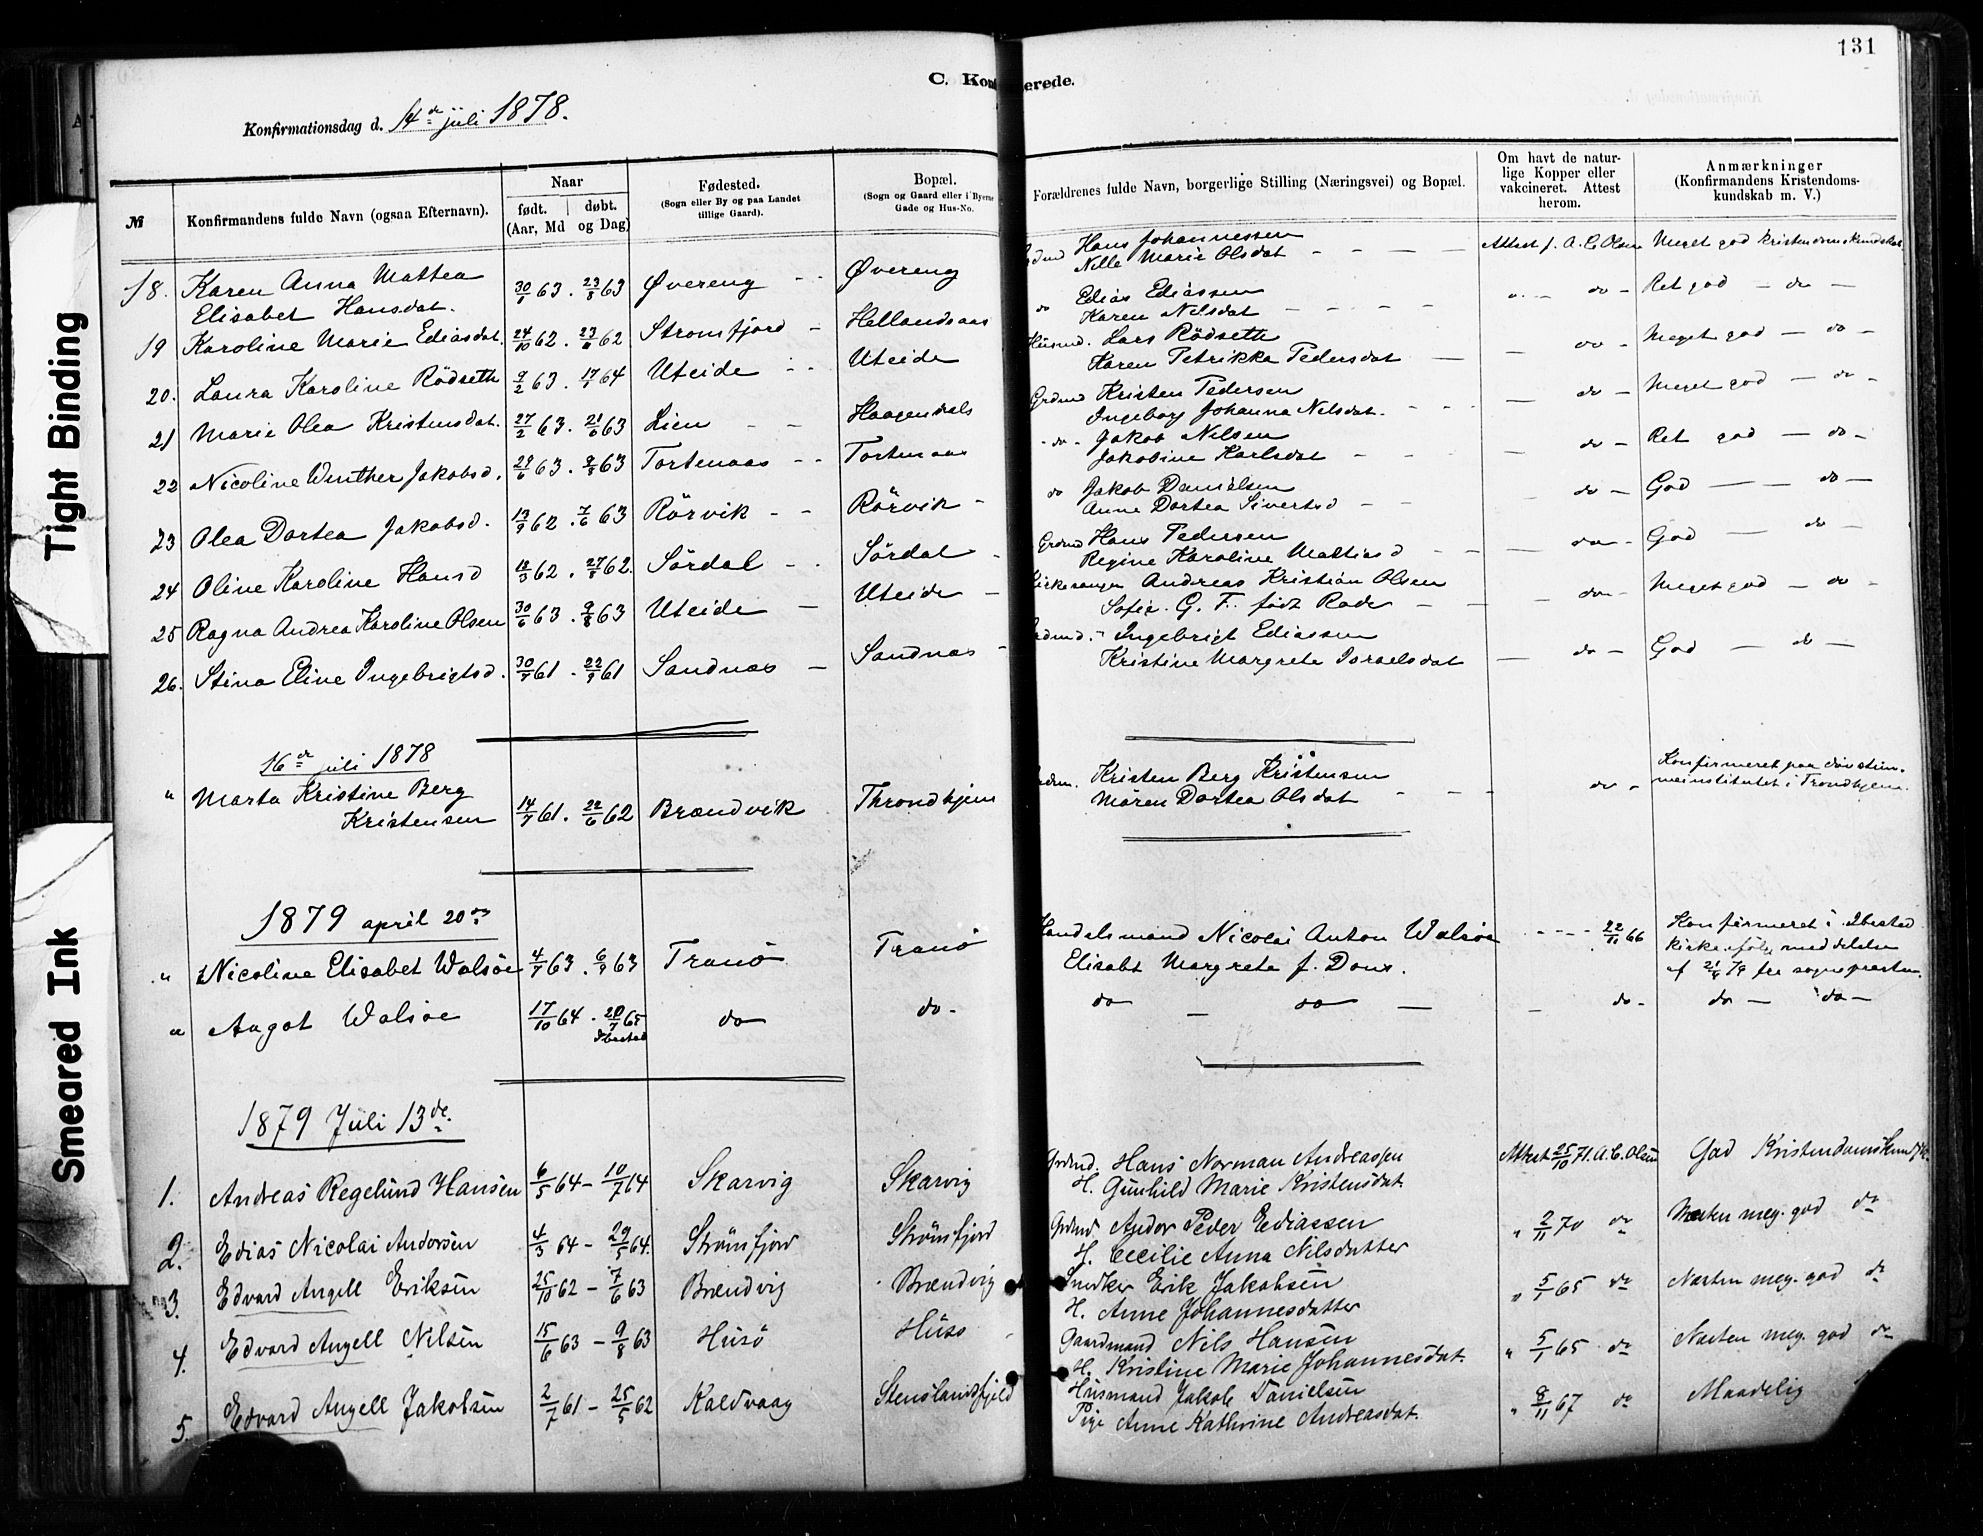 131
C. Kon erede.
Konfirmationsdag d. 14de juli 1878.
№ Konfirmandens fulde Navn (ogsaa Efternavn). Naar født. døbt. (Aar, Md og Dag) Fødested. (Sogn eller By og paa Landet tillige Gaard). Bopæl. (Sogn og Gaard eller i Byerne Gade og Hus-No. Forældrenes fulde Navn, borgerlige Stilling (Næringsvei) og Bopæl. Om havt de naturlige Kopper eller vakcineret. Attest herom. Anmærkninger (Konfirmandens Kristendomskundskab m. V.)
18. Karen Anna Mattea Elisabet Hansdat. 63. 23/8 63 Øvereng Øvereng Hans Johannessen Nille Marie Olsdat Attest f. A. C. Olsen Meget god kristendomskundskab
19 Karoline Marie Ediasdat. 24/10 62. 62 Stromsfjord Hallandsaas do Edias Ediassen Karen Nilsdat do Ret god do
20. Laura Karoline Rödseth 9/2 63. 64 Uteide Uteide Husmd. Lars Rödseth Karen Petrikka Pedersdat do Meget god do
21 Marie Olea Kristensdat. 27/2 63. 21/6 63 Lien Haagendals Grdmd Kristen Pedersen Ingeborg Johanna Nilsdat. do Meget god do
22 Nicoline Winther Jakobsd. 29/6 63. 9/8 63 Tortenaas Tortenaas do Jakob Nilsen Jakobine Karlsdat do Ret god do
23 Olea Dortea Jakobsd. 13/9 62. 7/6 63 Rörvik Rörvik do Jakob Danielsen Anne Dortea Sivertsd do God do
24 Oline Karoline Hansd 62. 62. Sördal Sördal Grdmd Hans Pedersen Regine Karoline Mathisd do God do
25 Ragna Andrea Karoline Olsen 30/6 63. 9/8 63 Uteide Uteide Kirkesanger Andreas Kristian Olsen Sofie G. F. født Rode do Meget god do
26. Stina Eline Ingebrigtsd. 61. 61 Sandnæs Sandnæs Ingebrigt Ediassen Kristine Margrete Israelsdat do God do
16de juli 1878
" Marta Kristine Berg Kristensen 14/7 61. 22/6 62 Brændvik Throndhjem Kristen Berg Kristensen Maren Dortea Olsdat do Konfirmeret paa døvstummeinstitutet i Trondhjem.
1879 april 20de
" Nicoline Elisabet Walsöe 4/7 63. 6/9 63 Tranö Tranö Handelsmand Nicolai Anton Walsöe Elisabt Margrete f. Dons. 22/11 66 Konfirmeret i Ibestad kirke ifølge meddelelse af 21/4 79 fra sognepresten.
" Aagot Walsöe 17/10 64. 20/7 65 Ibestad do do do do do do do
1879 Juli 13de.
1. Andreas Regelund Hansen 6/5 64 – 10/7 64 Skarvig Skarvig Grdmd. Hans Norman Andreassen H. Gunhild Marie Kristensdat. Attest 25/10 71. A. C. Olsen God Kristendomskundsk.
2. Edias Nicolai Andorsen 4/3 64 – 29/5 64. Strömsfjord Strömsfjord Grdmd Andor Peder Ediassen H. Cecilie Anna Nilsdatter " 2/11 70 do Næsten meg. god do
3. Edvard Angell Eriksen 25/10 62 – 7/6 63 Brændvig Brændvig Snedker Erik Jakobsen H. Anne Johannesdatter " 5/1 65 do Næsten meg. god do
4. Edvard Angell Nilsen 15/6 63 – 9/8 63 Husö Husö Gaardmand Nils Hansen H. Kristine Marie Johannesdat. " 5/1 65 do Næsten meg. god do
5. Edvard Angell Jakobsen 2/7 61 – 25/5 62 Kaldvaag Stenslandsfjeld Husmand Jakob Danielsen Pige Anne Kathrine Andreasdat. " 8/11 67 do Maadelig
Tight Binding
Smeared Ink